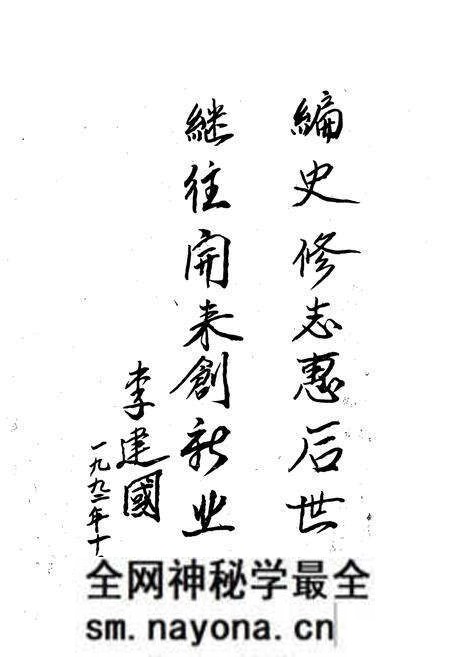 編史修志惠后世
継往開来創新业
李建國
一九九二年十
全网神秘学最全
sm.nayona.cn